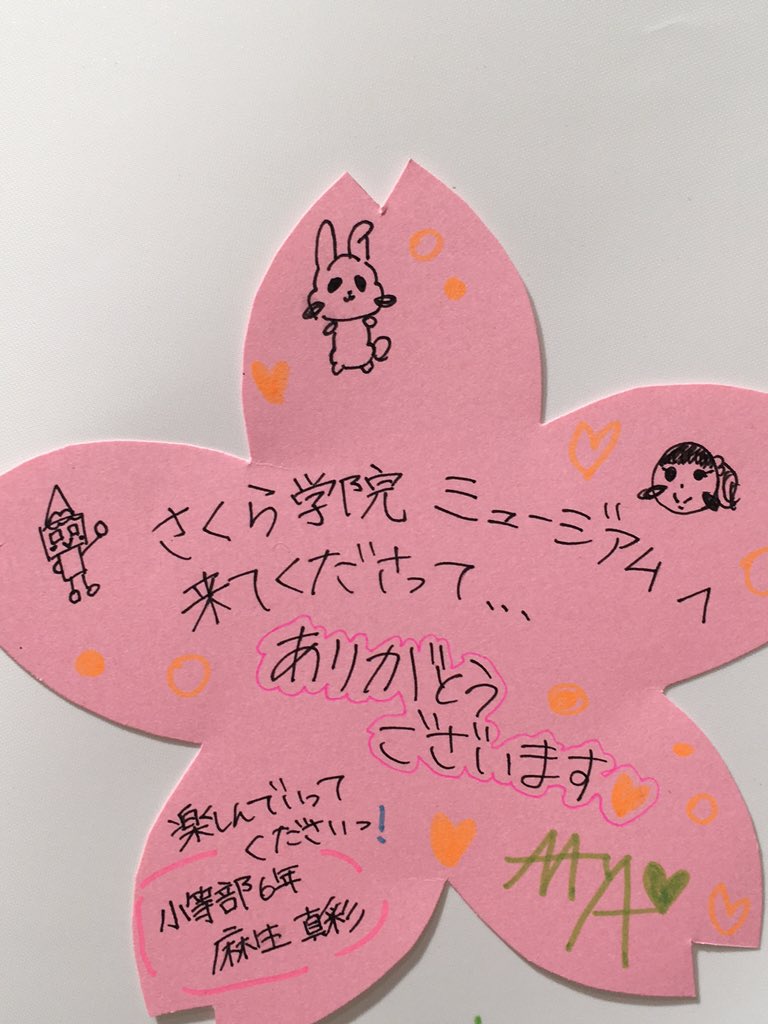 さくら学院 ミュージアムへ
来てくださって...
ありがとう
ございます
楽しんでいって
くださいっ!
小等部6年
麻生 真彩
MYA